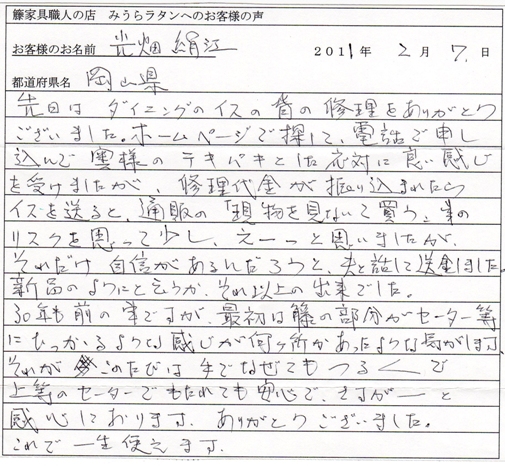 籐家具職人の店 みうらラタンへのお客様の声
お客様のお名前 光畑 絹江 2011年 2月 7日
都道府県名 岡山県
先日は ダイニングのイスの背の修理をありがとう
ございました。ホームページで探して、電話で申し
込んで奥様のテキパキとした応対に良い感じ
を受けましたが、修理代金が振り込まれたら
イスを送ると、通販の「現物を見ないで買う」事の
リスクを思って少し、えーっと思いましたが、
それだけ自信があるんだろうと、夫と話して送金しました。
新品のようにと言うか、それ以上の出来でした。
30年も前の事ですが、最初は籐の部分がセーター等
にひっかるような感じが何ヶ所かあったような気がします。
それが このたびは手でなぜてもつるくで
上等のセーターでもたれても安心で、さすがーと
感心しております。ありがとうございました。
これで一生使えます。